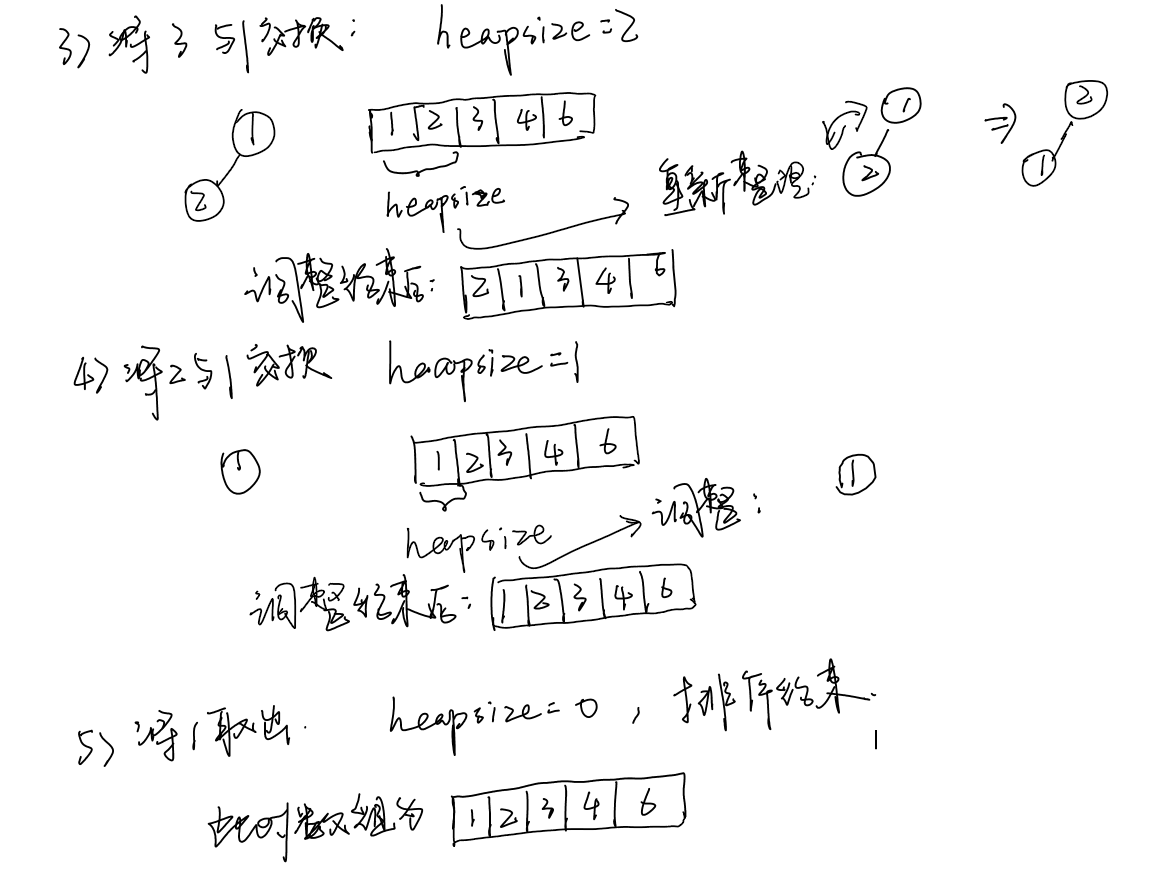 3) 将3与1交换: heapsize=2
1 2 1 2 3 4 6 1 2 ⇒ 2 1
heapsize 重新整理:
调整结束后: 2 1 3 4 6
4) 将2与1交换 heapsize=1
1 1 2 3 4 6 1
heapsize 调整:
调整结束后: 1 2 3 4 6
5) 将1取出. heapsize=0, 排序结束.
此时数组为 1 2 3 4 6